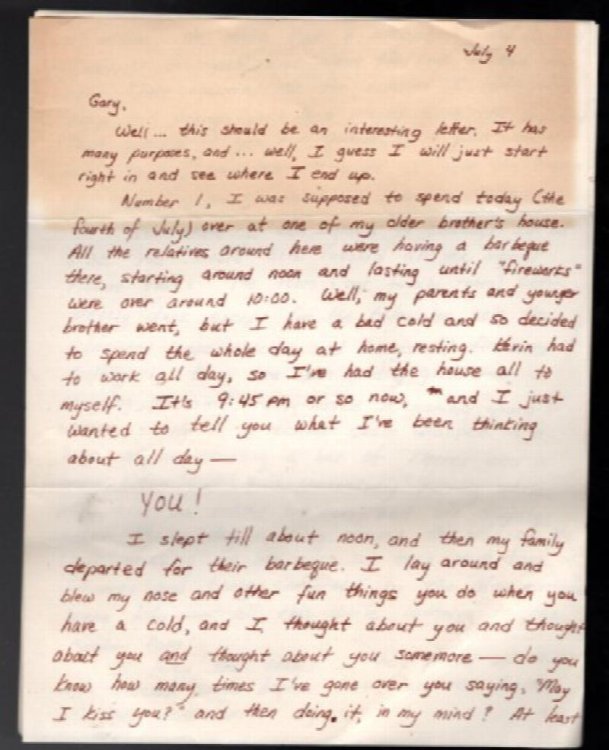 July 4
Gary,
Well... this should be an interesting letter. It has
many purposes, and... well, I guess I will just start
right in and see where I end up.
Number 1, I was supposed to spend today (the
fourth of July) over at one of my older brother's house.
All the relatives around here were having a barbeque
there, starting around noon and lasting until "fireworks"
were over around 10:00. Well, my parents and younger
brother went, but I have a bad cold and so decided
to spend the whole day at home, resting. Kevin had
to work all day, so I've had the house all to
myself. It's 9:45 pm or so now, and I just
wanted to tell you what I've been thinking
about all day —
YOU!
I slept till about noon, and then my family
departed for their barbeque. I lay around and
blew my nose and other fun things you do when you
have a cold, and I thought about you and thought
about you and thought about you somemore — do you
know how many times I've gone over you saying, "May
I kiss you?" and then doing it, in my mind? At least